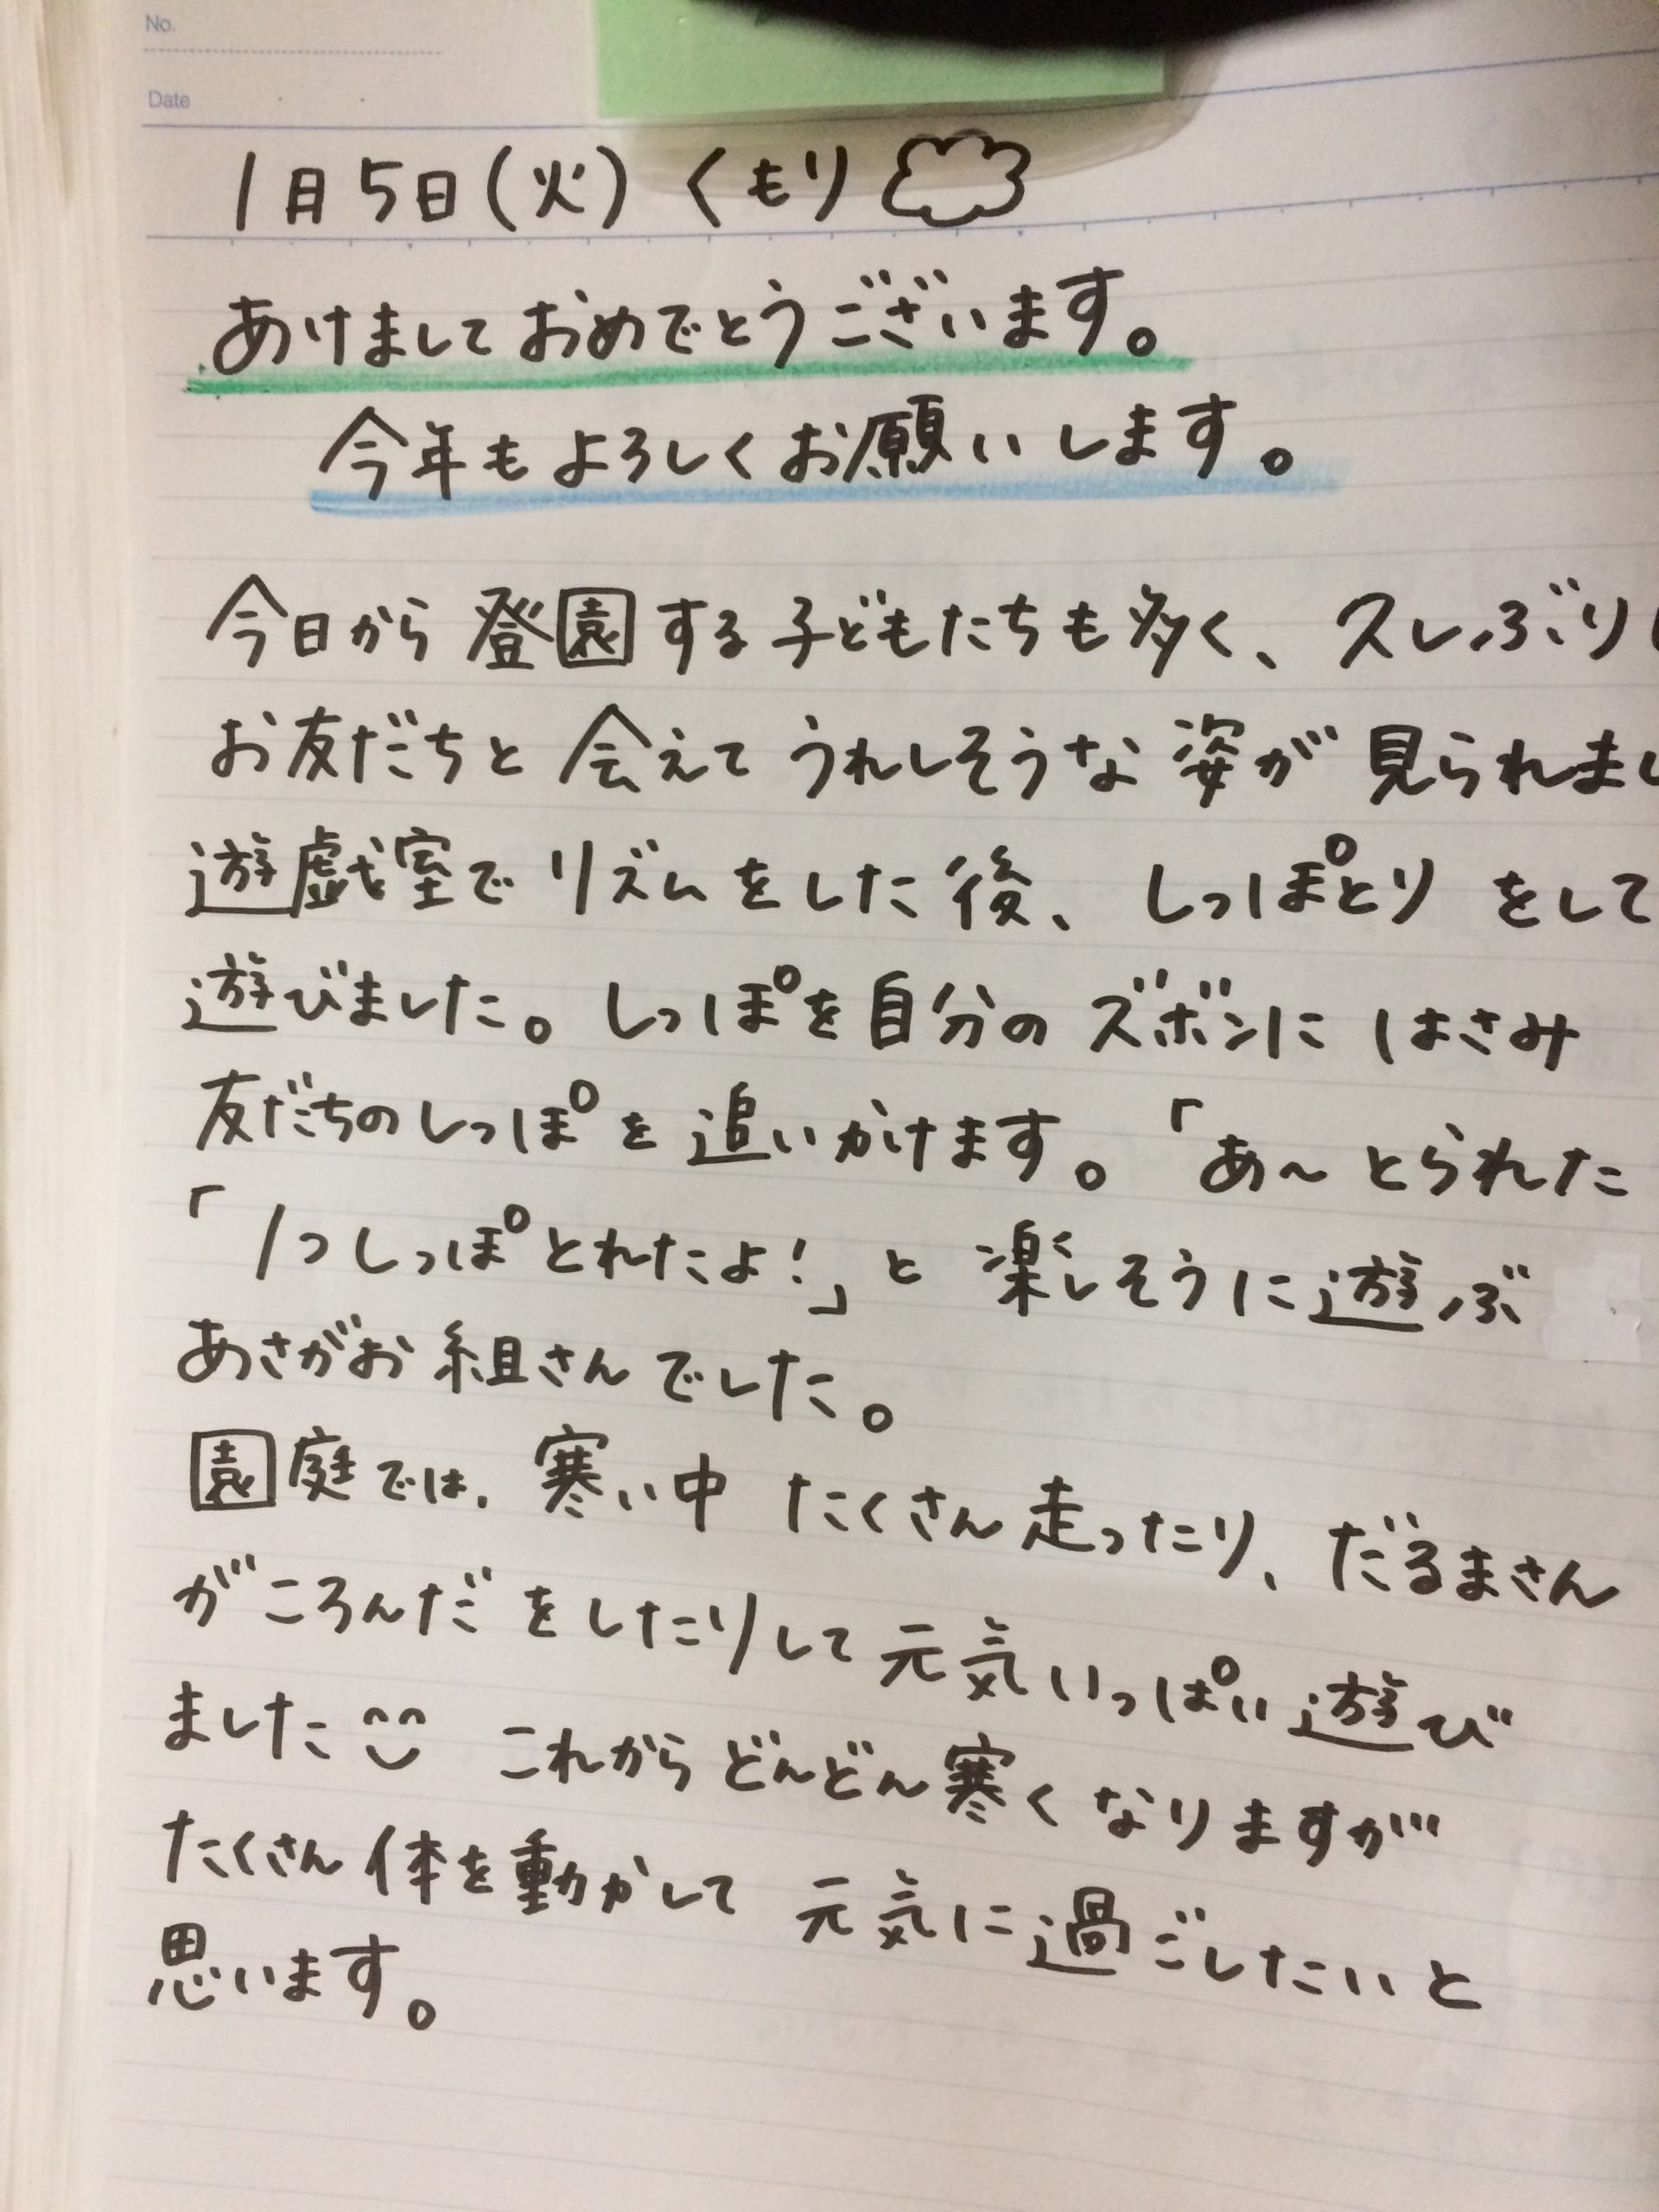 No.
Date
1月5日(火) くもり
あけましておめでとうございます。
今年もよろしくお願いします。
今日から登園する子どもたちも多く、久しぶりに
お友だちと会えてうれしそうな姿が見られまし
遊戯室でリズムをした後、しっぽとりをして
遊びました。しっぽを自分のズボンにはさみ
友だちのしっぽを追いかけます。「あ〜とられた
「1つしっぽとれたよ!」と楽しそうに遊ぶ
あさがお組さんでした。
園庭では、寒い中たくさん走ったり、だるまさん
がころんだをしたりして元気いっぱい遊び
ました これからどんどん寒くなりますが
たくさん体を動かして元気に過ごしたいと
思います。